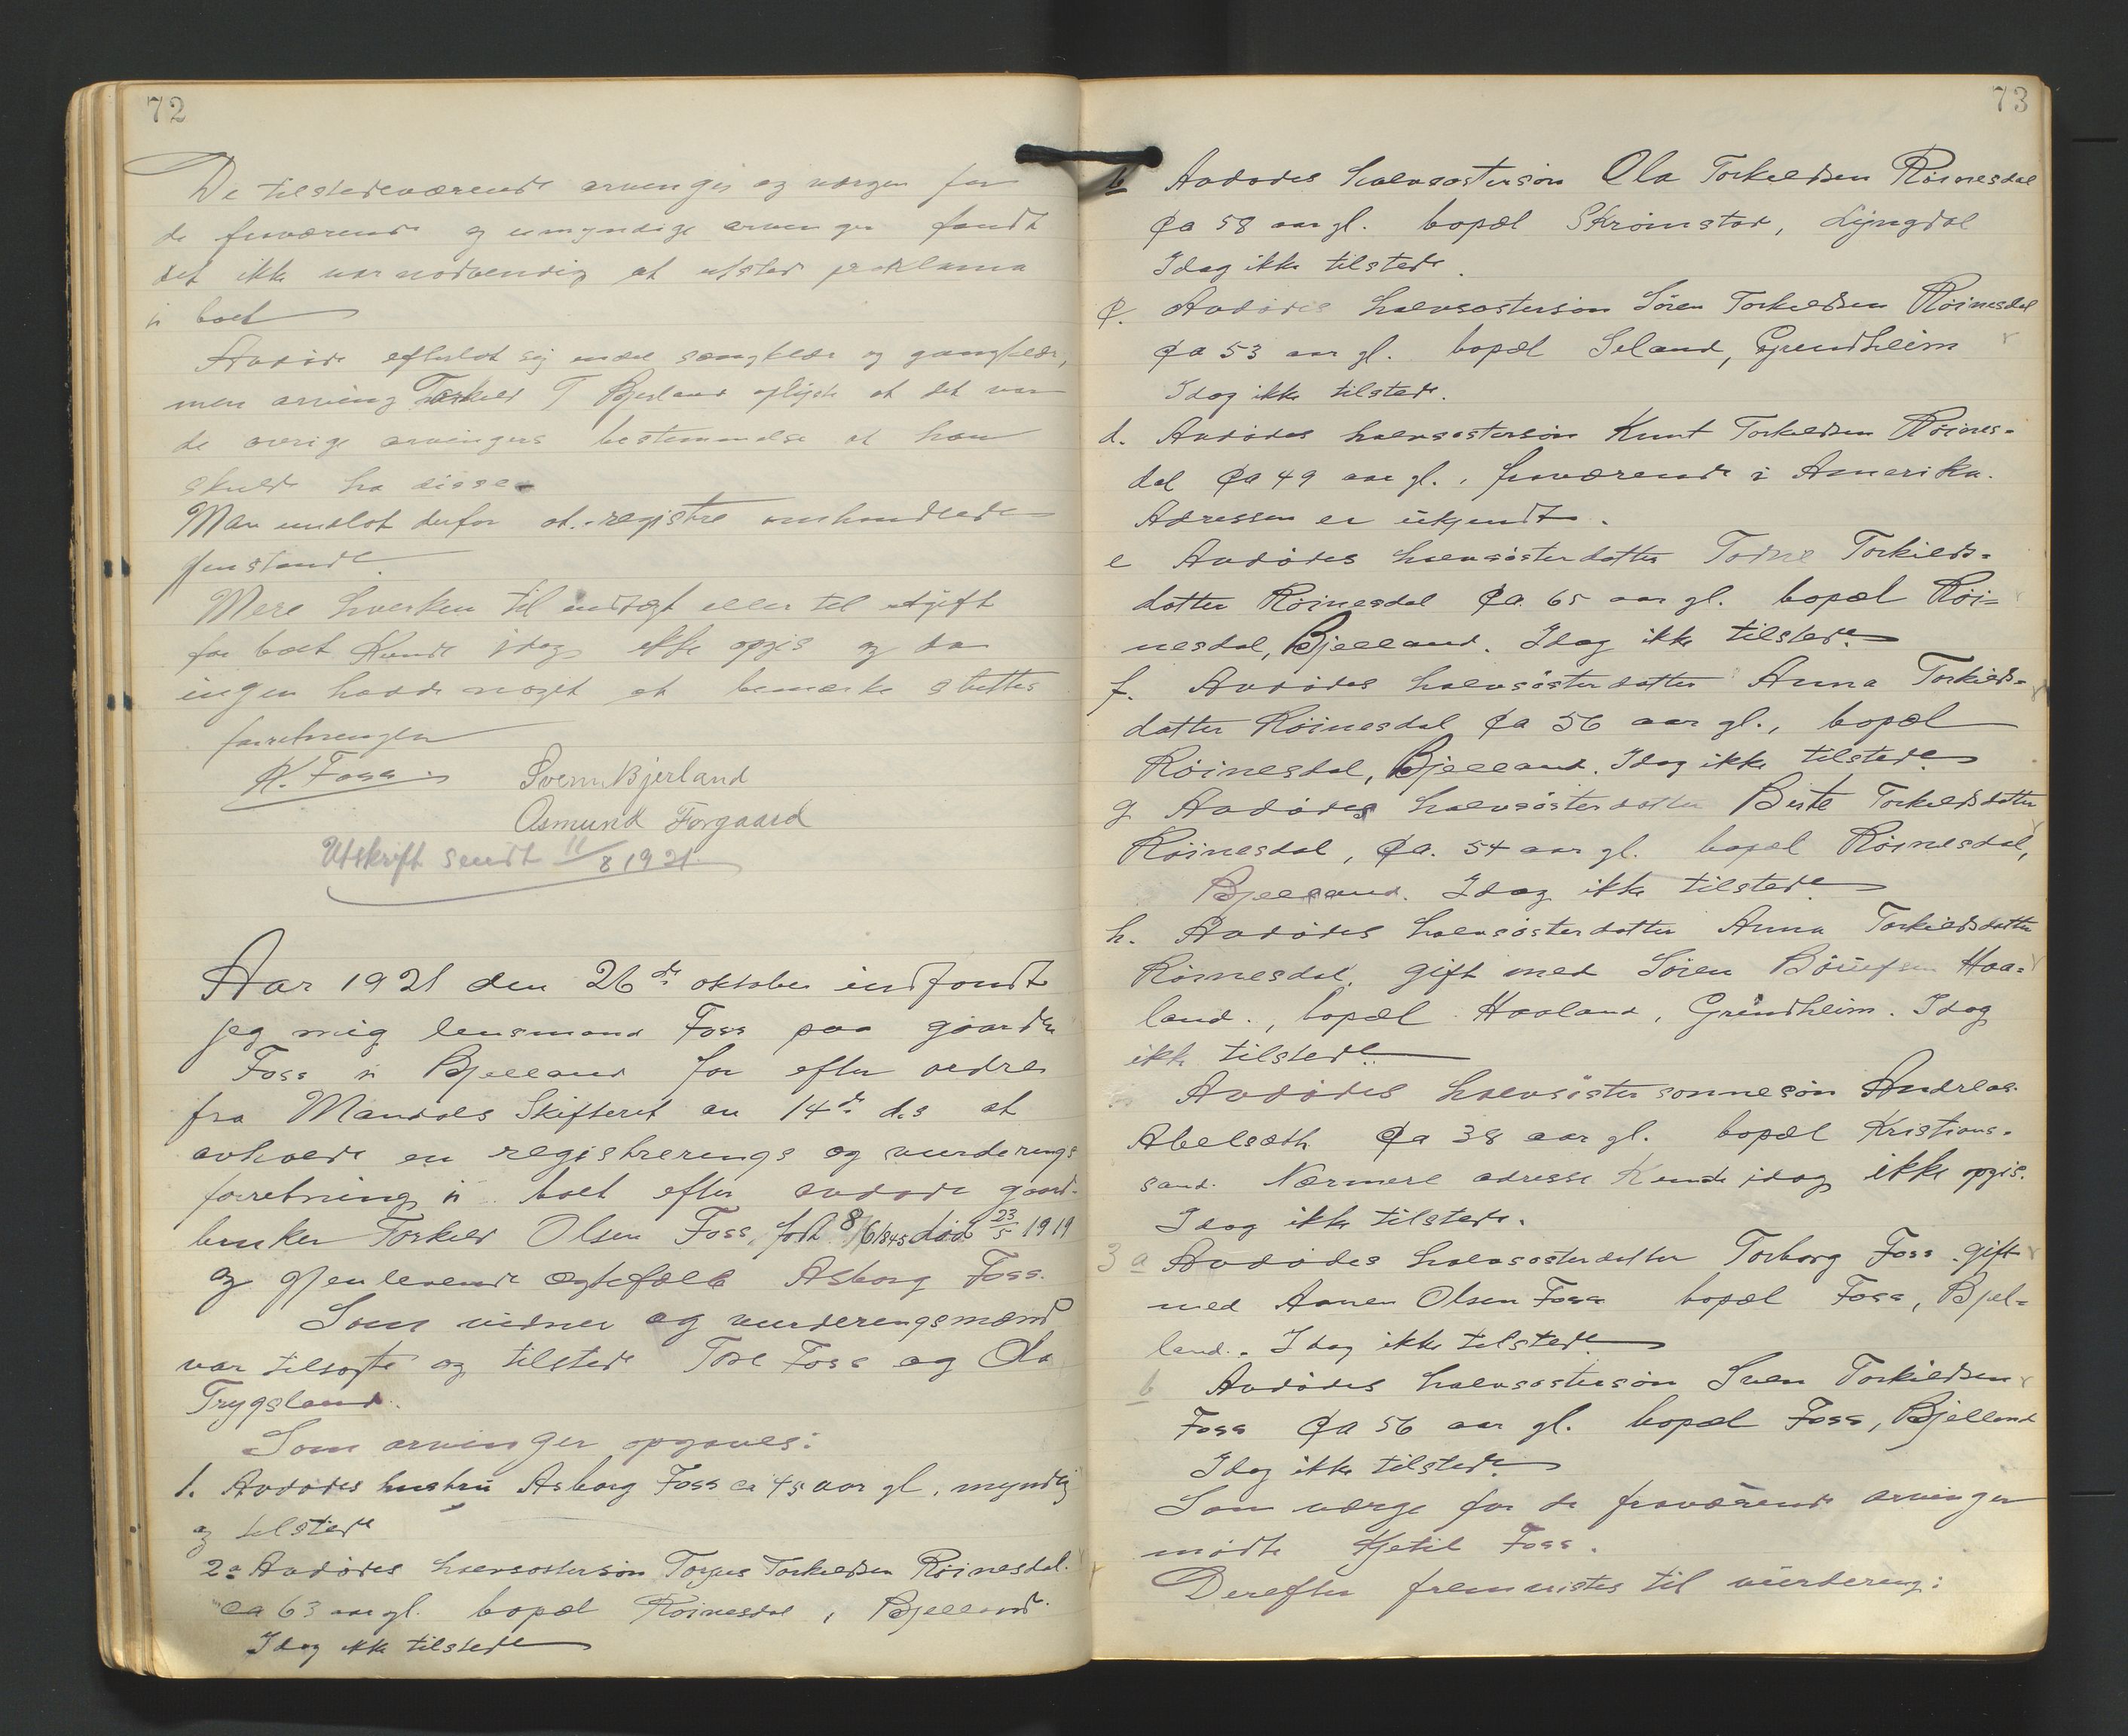 72
De tilstedeværende arvinger og vergen for
de fraværende og umyndige arvinger fandt
det ikke var nødvendig at utstede proklama
i boet
Avdøde efterlot sig endel sengklær og gangklær,
men arving Torkild T Bjerland oplyste at det var
de øvrige arvingers bestemmelse at han
skulde ha disse.
Man undlot derfor at registre omhandlede
gjenstande.
Mere hverken til indtægt eller til utgift
for boet kunde idag ikke opgis og da
ingen hadde noget at bemærke sluttes
forretningen
K. Foss. Svenn Bjerland
Asmund Forgaard
Utskrift sendt 11/8 1921.
Aar 1921 den 26de oktober indfandt
jeg mig lensmand Foss paa gaarden
Foss i Bjelland for efter ordre
fra Mandals Skifteret av 14de ds at
avholde en registrerings og vurderings
forretning i boet efter avdøde gaard-
bruker Torkild Olsen Foss, født 8/6 1845 død 23/5 1919
og gjenlevende ægtefælle Asborg Foss.
Som vidner og vurderingsmænd
var tilsagte og tilstede Tore Foss og Ola
Trygsland.
Som arvinger opgaves:
1. Avdødes hustru Asborg Foss ca 45 aar gl, myndig
og tilstede
2a Avdødes halvsøstersøn Torjus Torkildsen Röinesdal.
ca 63 aar gl. bopæl Röinesdal, Bjelland.
Idag ikke tilstede
73
b Avdødes halvsøstersøn Ola Torkildsen Röinesdal
ca 58 aar gl. bopæl Skrömstad, Lyngdal
Idag ikke tilstede.
c. Avdödes halvsøstersön Sören Torkildsen Röinesdal
ca 53 aar gl. bopæl Seland, Grindheim
Idag ikke tilstede.
d. Avdödes halvsøstersön Knut Torkildsen Röines-
dal ca 49 aar gl., fraværende i Amerika.
Adressen er ukjendt.
e Avdødes halvsösterdatter Torne Torkilds-
datter Röinesdal ca. 65 aar gl. bopæl Röi-
nesdal, Bjelland. Idag ikke tilstede.
f. Avdödes halvsösterdatter Anna Torkilds-
datter Röinesdal ca 56 aar gl., bopæl
Röinesdal, Bjelland. Idag ikke tilstede.
g Avdödes halvsösterdatter Berte Torkildsdatter
Röinesdal, ca. 54 aar gl. bopæl Röinesdal,
Bjelland. Idag ikke tilstede.
h. Avdödes halvsösterdatter Anna Torkildsdatter
Röinesdal. gift med Sören Haa-
land., bopæl Haaland, Grindheim. Idag
ikke tilstede.
Avdödes halvsöstersønnesön Andreas
Abelsæth ca 38 aar gl. bopæl Kristians-
sand. Nærmere adresse kunde idag ikke opgis.
Idag ikke tilstede.
3 a Avdödes halvsøsterdatter Torborg Foss gift
med Aanen Olsen Foss bopæl Foss, Bjel-
land. Idag ikke tilstede.
b Avdödes halvsøstersön Sven Torkildsen
Foss ca 56 aar gl. bopæl Foss, Bjelland
Idag ikke tilstede.
Som værge for de fraværende arvinger
mödte Kjetil Foss.
Derefter fremvistes til vurdering: